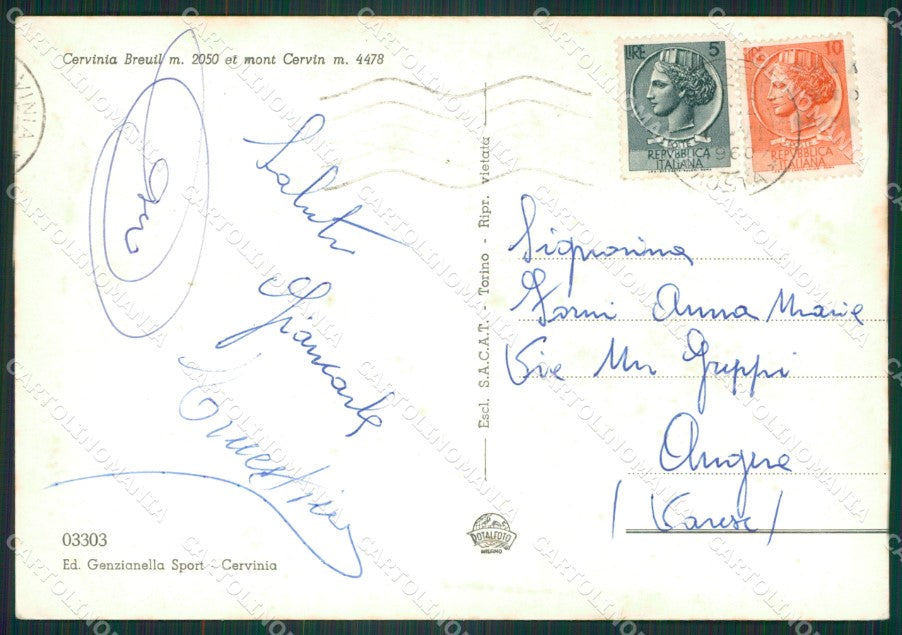 Cervinia Breuil m. 2050 et mont Cervin m. 4478
Saluti
Giancarlo
Ernestina
03303
Ed. Genzianella Sport - Cervinia
Escl. S.A.C.A.T. - Torino - Ripr. vietata
ROTALFOTO
MILANO
LIRE 5
POSTE
REPVBBLICA
ITALIANA
10
REPVBBLICA
ITALIANA
Signorina
Forni Anna Maria
Vie Greppi
Angera
(Varese)
CARTOLINOMANIA